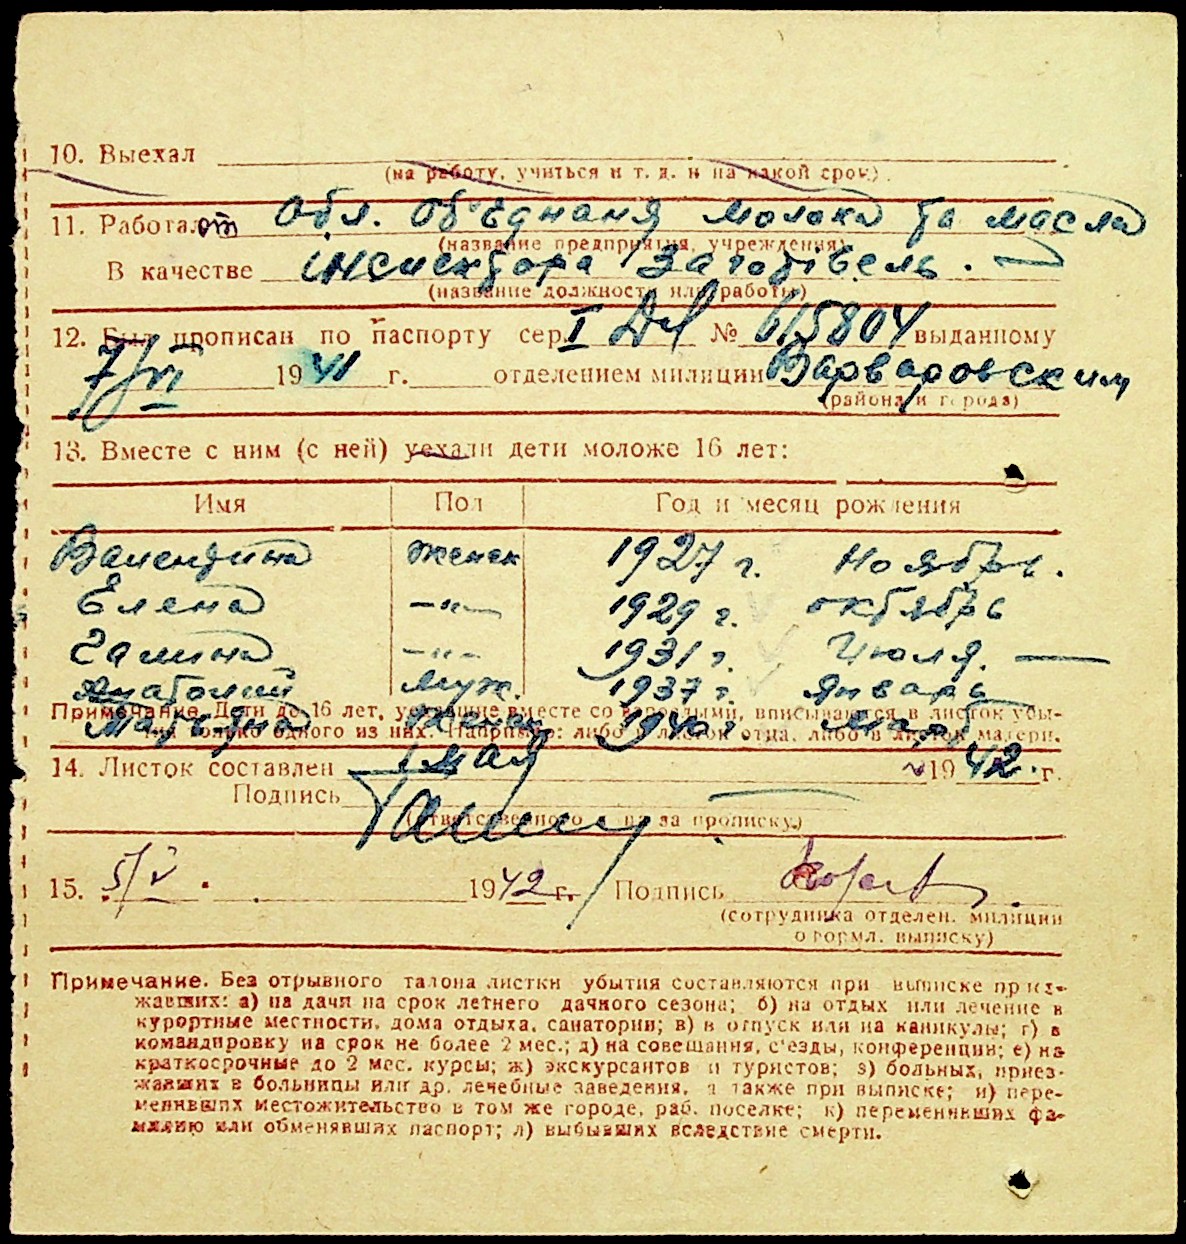 10. Выехал
(на работу, учиться и т. д. и на какой срок)
11. Работал от Обл. Об'єднаня молока та масла
(название предприятия, учреждения)
В качестве інспектора Заготівель.
(название должности или работы)
12. Был прописан по паспорту сер. I № 615804 выданному
7/VI 1941 г. отделением милиции Варваровским
(района и города)
13. Вместе с ним (с ней) уехали дети моложе 16 лет:
Имя Пол Год и месяц рождения
Валентина женск 1927 г. Ноябрь.
Елена —"— 1929 г. октябрь
Галина —"— 1931 г. Июля. —
Анатолий Муж. 1937 г. январь
Примечание. Дети до 16 лет, уехавшие вместе со взрослыми, вписываются в листок убы-
тия только одного из них. Например: либо в листок отца, либо в листок матери.
женск 1940 г
14. Листок составлен 1 мая 1942. г.
Подпись
(ответственного лица за прописку)
15. 5/V. 1942 г. Подпись
(сотрудника отделен. милиции
оформл. выписку)
Примечание. Без отрывного талона листки убытия составляются при выписке приез-
жавших: а) на дачи на срок летнего дачного сезона; б) на отдых или лечение в
курортные местности, дома отдыха, санатории; в) в отпуск или на каникулы; г) в
командировку на срок не более 2 мес.; д) на совещания, с'езды, конференции; е) на
краткосрочные до 2 мес. курсы; ж) экскурсантов и туристов; з) больных, приез-
жавших в больницы или др. лечебные заведения, а также при выписке; и) пере-
менивших местожительство в том же городе, раб. поселке; к) переменивших фа-
милию или обменявших паспорт; л) выбывших вследствие смерти.